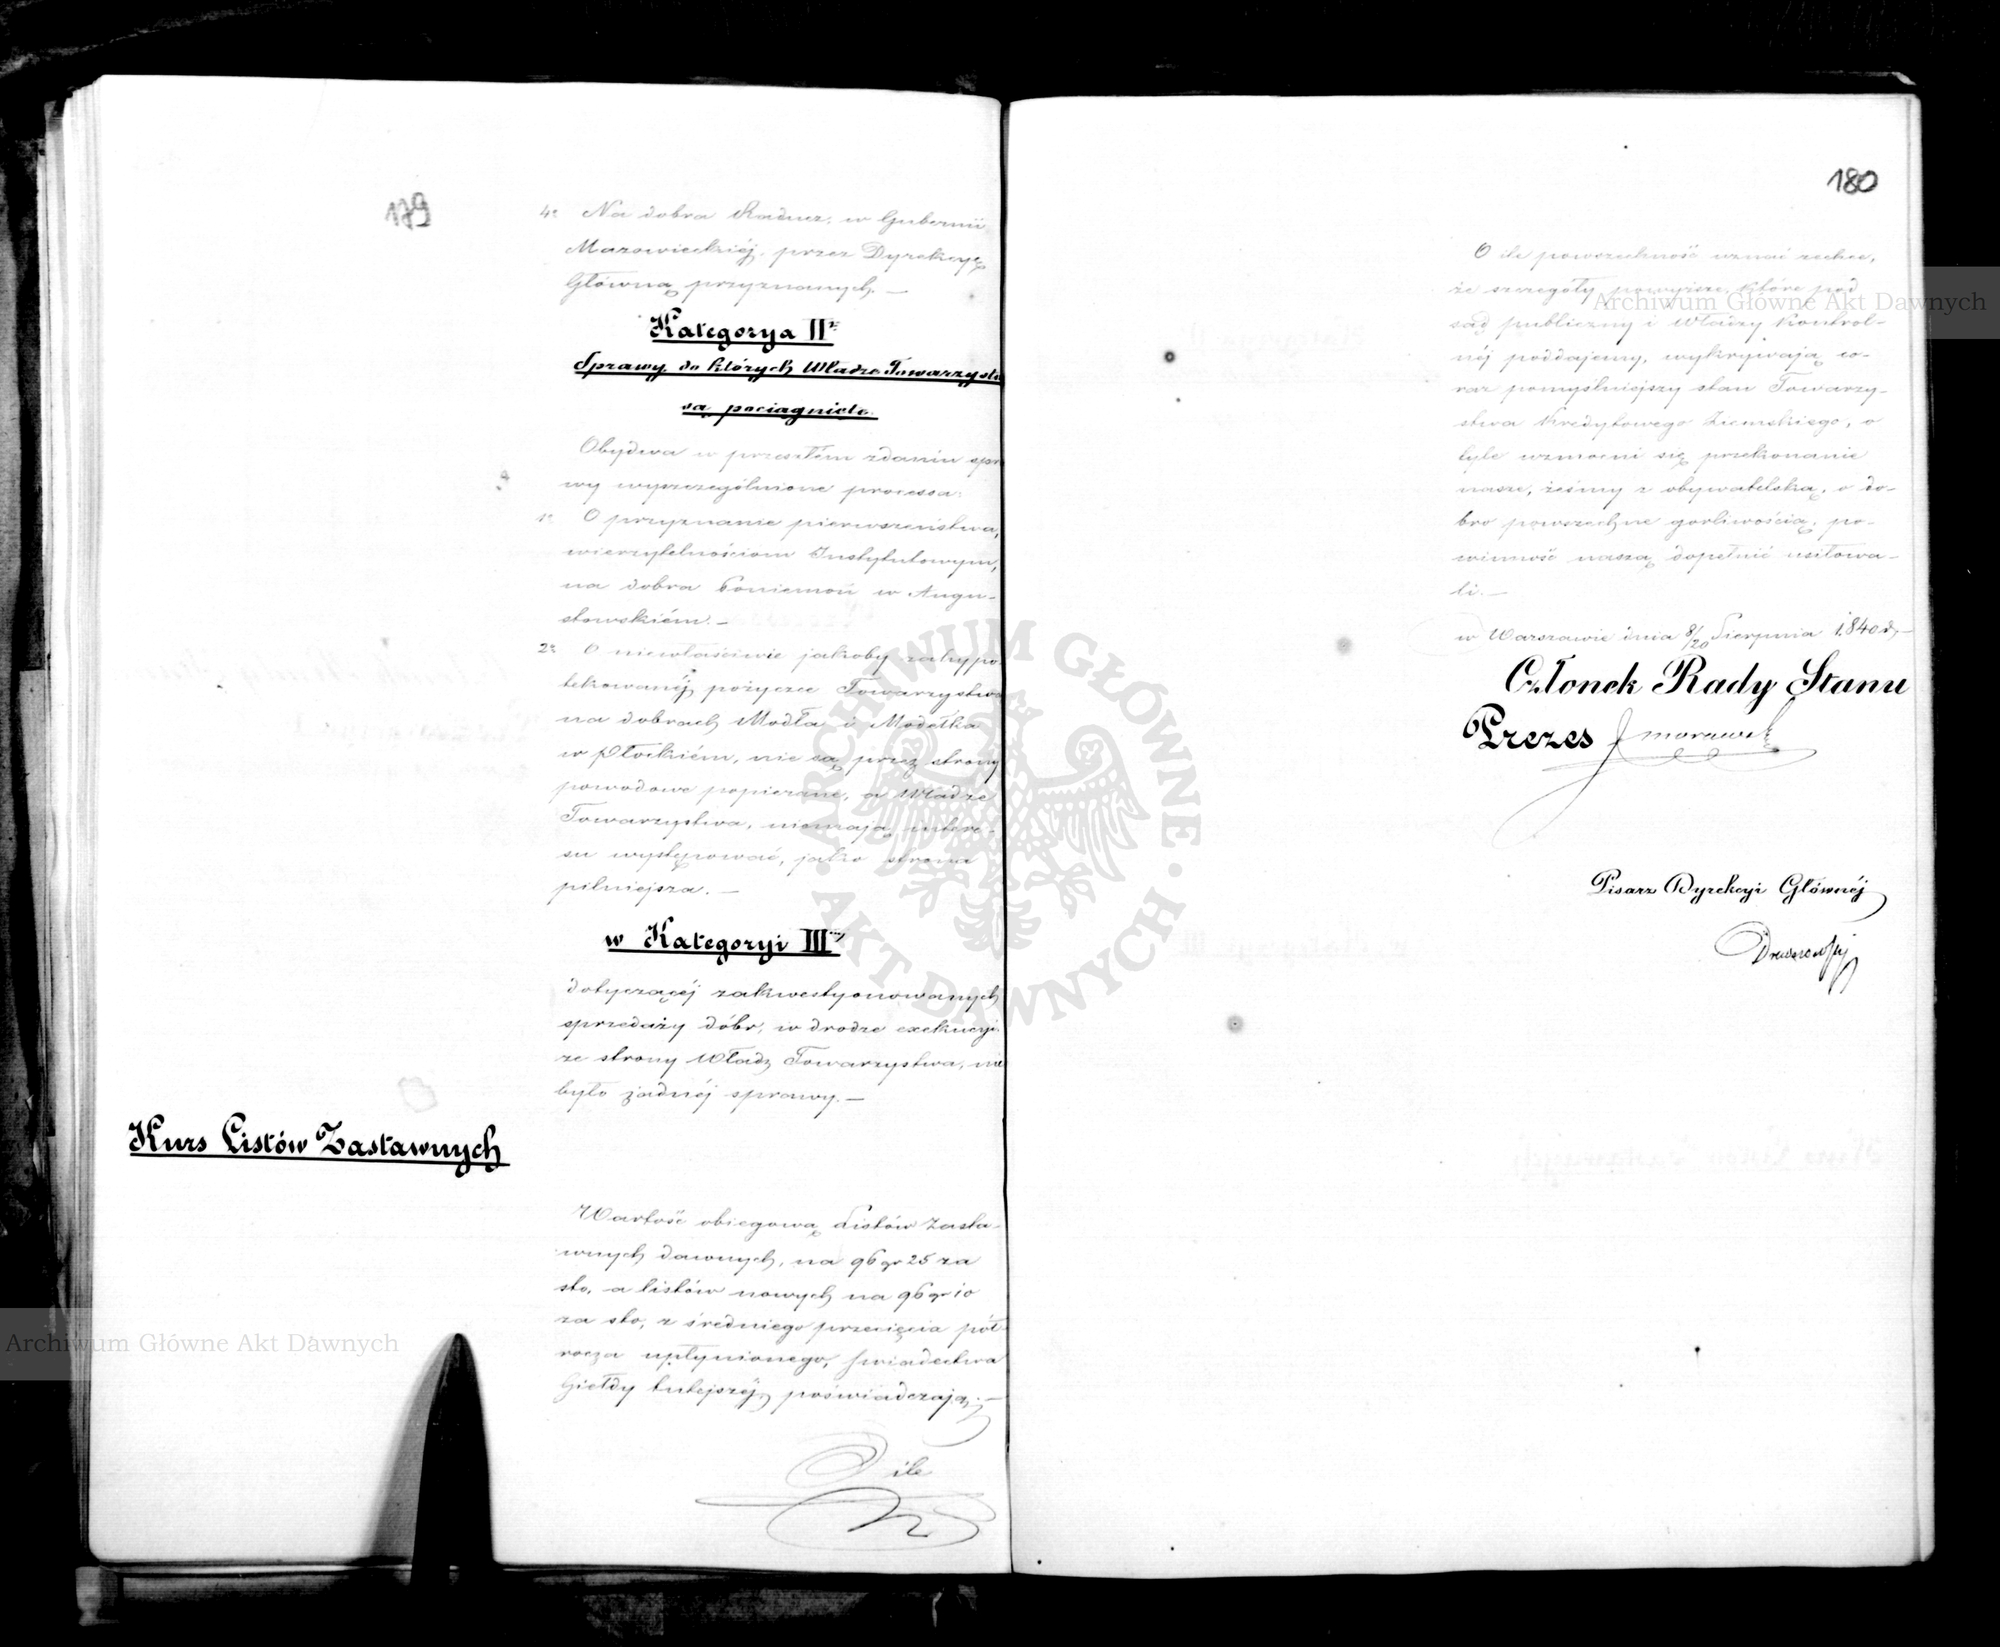 179
4o Na dobra Raducz, w Gubernii
Mazowieckiéj, przez Dyrekcyę
Główną przyznanych. —
Kategorya IIa
Sprawy do których Władze Towarzystw
są pociągnięte.
Obydwa w przeszłém zdaniu spra
wy wyszczególnione processa:
1o O przyznanie pierwszeństwa,
wierzytelnościom Instytutowym,
na dobra Poniemoń w Augu-
stowskiém. —
2o O niewłaściwie jakoby zahypo-
tekowanéj pożyczce Towarzystwa
na dobrach Modła i Modełka
w Płockiém, nie są przez strony
powodowe popierane, a Władze
Towarzystwa, niemają intere-
su występować, jako strona
pilniejsza. —
w Kategoryi III
dotyczącéj zakwestyonowanych
sprzedaży dóbr, w drodze exekucyi
ze strony Władz Towarzystwa, nie
było żadnéj sprawy. —
Kurs Listów Zastawnych
Wartość obiegową Listów Zasta-
wnych dawnych, na 96 gr 25 za
sto, a listów nowych na 96 gr 10
za sto, z średniego przecięcia pół-
rocza upłynionego, świadectwa
Giełdy tutejszéj poświadczają. —
O ile
180
O ile powszechność uznać zechce,
że szczegóły powyższe, które pod
sąd publiczny i Władzy Kontrol-
néj poddajemy, wykrywają co-
raz pomyślniejszy stan Towarzy-
stwa Kredytowego Ziemskiego, o
tyle wzmocni się przekonanie
nasze, żeśmy z obywatelską, o do-
bro powszechne gorliwością, po-
winność naszą dopełnić usiłowa-
li. —
w Warszawie dnia 8/20 Sierpnia 1840 r. —
Członek Rady Stanu
Prezes J Morawsk
Pisarz Dyrekcyi Głównéj
Drewnowski
Archiwum Główne Akt Dawnych
Archiwum Główne Akt Dawnych
ARCHIWUM GŁÓWNE · AKT DAWNYCH ·